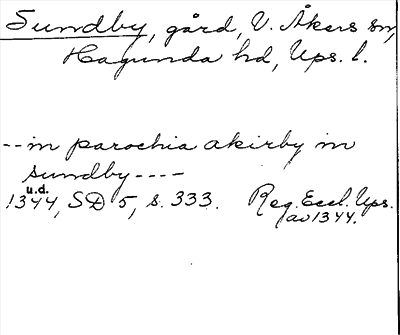 Sundby, gård, V. Åkers sn,
Hagunda hd, Ups. l.
--in parochia akirby in
sundby----
u.d.
1344, SD 5, s. 333. Reg. Eccl. Ups.
av 1344.